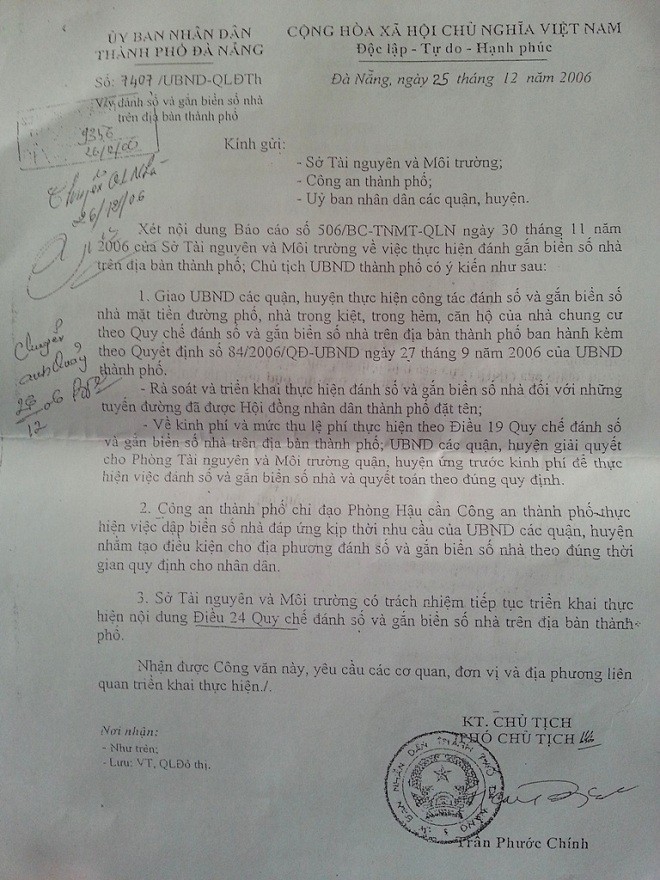 ỦY BAN NHÂN DÂN
THÀNH PHỐ ĐÀ NẴNG
CỘNG HÒA XÃ HỘI CHỦ NGHĨA VIỆT NAM
Độc lập - Tự do - Hạnh phúc
Số: 7407 /UBND-QLĐTh
V/v đánh số và gắn biển số nhà
trên địa bàn thành phố
Đà Nẵng, ngày 25 tháng 12 năm 2006
9356
Chuyển QL Nhà
26/12/06
Kính gửi:
- Sở Tài nguyên và Môi trường;
- Công an thành phố;
- Uỷ ban nhân dân các quận, huyện.
Xét nội dung Báo cáo số 506/BC-TNMT-QLN ngày 30 tháng 11 năm
2006 của Sở Tài nguyên và Môi trường về việc thực hiện đánh gắn biển số nhà
trên địa bàn thành phố; Chủ tịch UBND thành phố có ý kiến như sau:
1. Giao UBND các quận, huyện thực hiện công tác đánh số và gắn biển số
nhà mặt tiền đường phố, nhà trong kiệt, trong hẻm, căn hộ của nhà chung cư
theo Quy chế đánh số và gắn biển số nhà trên địa bàn thành phố ban hành kèm
theo Quyết định số 84/2006/QĐ-UBND ngày 27 tháng 9 năm 2006 của UBND
thành phố.
Chuyển
anh Quảy
26
12
06
- Rà soát và triển khai thực hiện đánh số và gắn biển số nhà đối với những
tuyến đường đã được Hội đồng nhân dân thành phố đặt tên;
- Về kinh phí và mức thu lệ phí thực hiện theo Điều 19 Quy chế đánh số
và gắn biển số nhà trên địa bàn thành phố; UBND các quận, huyện giải quyết
cho Phòng Tài nguyên và Môi trường quận, huyện ứng trước kinh phí để thực
hiện việc đánh số và gắn biển số nhà và quyết toán theo đúng quy định.
2. Công an thành phố chỉ đạo Phòng Hậu cần Công an thành phố thực
hiện việc dập biển số nhà đáp ứng kịp thời nhu cầu của UBND các quận, huyện
nhằm tạo điều kiện cho địa phương đánh số và gắn biển số nhà theo đúng thời
gian quy định cho nhân dân.
3. Sở Tài nguyên và Môi trường có trách nhiệm tiếp tục triển khai thực
hiện nội dung Điều 24 Quy chế đánh số và gắn biển số nhà trên địa bàn thành
phố.
Nhận được Công văn này, yêu cầu các cơ quan, đơn vị và địa phương liên
quan triển khai thực hiện./.
Nơi nhận:
- Như trên;
- Lưu: VT, QLĐô thị.
KT. CHỦ TỊCH
PHÓ CHỦ TỊCH
Trần Phước Chính